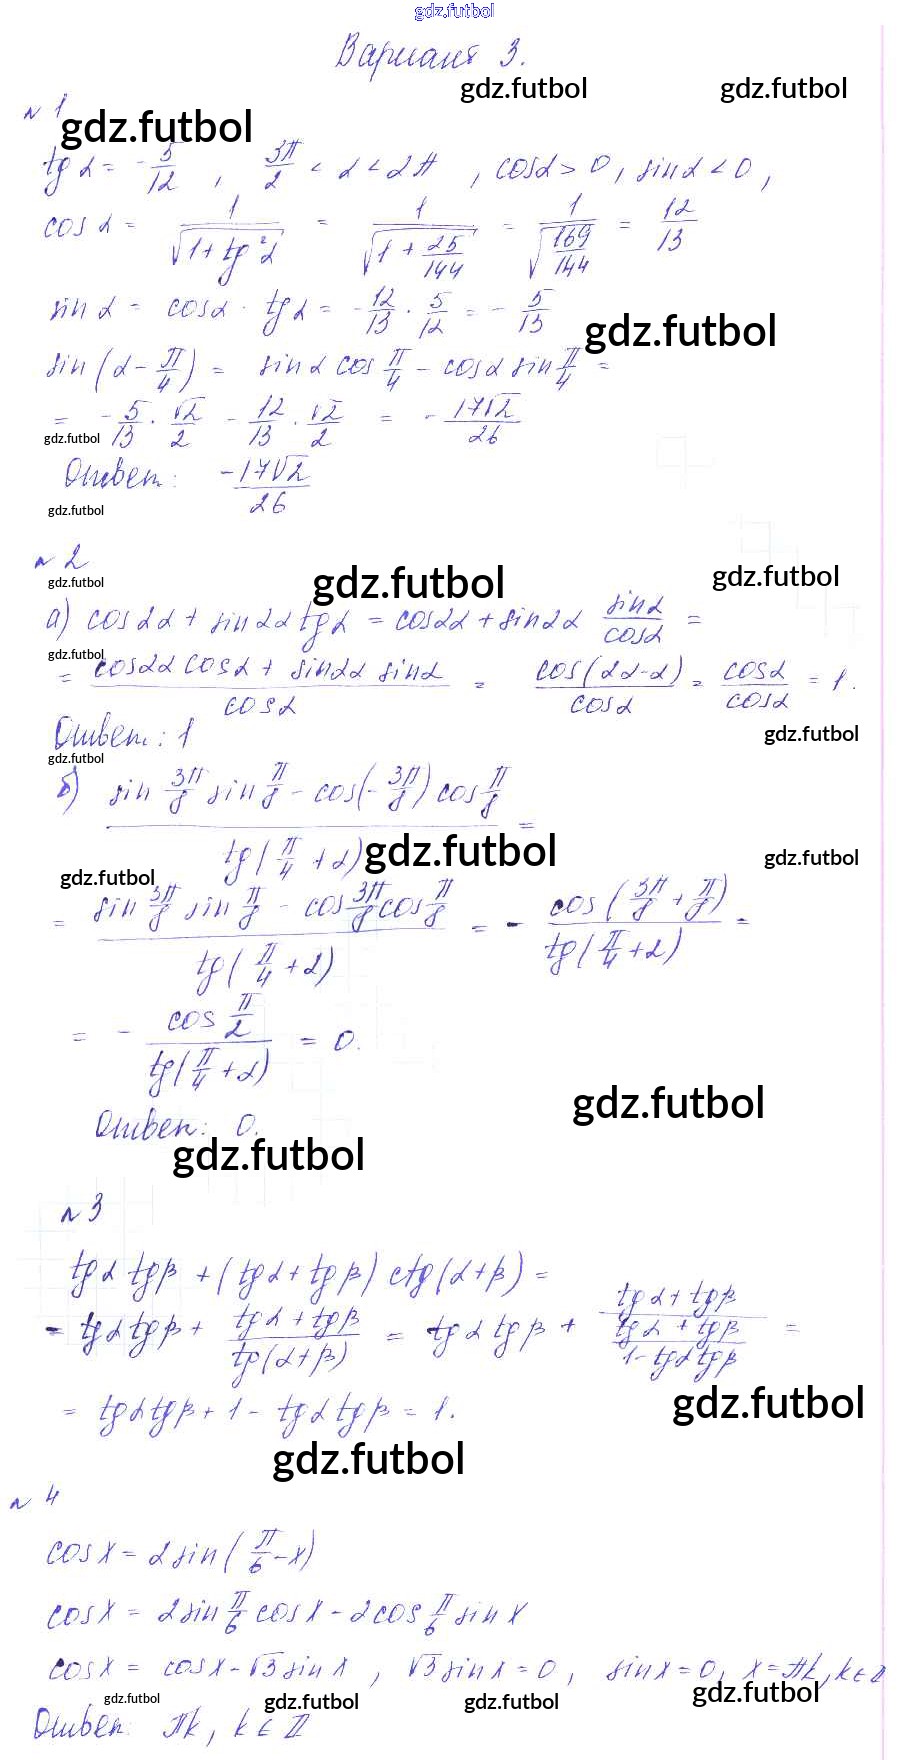 gdz.futbol
Вариант 3.
gdz.futbol gdz.futbol
№ 1
gdz.futbol
tg α = - 5/12 , 3π/2 < α < 2π , cos α > 0, sin α < 0,
cos α = 1/√(1 + tg²α) = 1/√(1 + 25/144) = 1/√(169/144) = 12/13
sin α = cos α · tg α = - 12/13 · 5/12 = - 5/13
gdz.futbol
sin(α - π/4) = sin α cos π/4 - cos α sin π/4 =
= - 5/13 · √2/2 - 12/13 · √2/2 = - 17√2/26
gdz.futbol
Ответ: -17√2/26
gdz.futbol
№ 2
gdz.futbol gdz.futbol gdz.futbol
а) cos 2α + sin 2α tg α = cos 2α + sin 2α sin α/cos α =
gdz.futbol
= (cos 2α cos α + sin 2α sin α)/cos α = cos(2α - α)/cos α = cos α/cos α = 1.
Ответ: 1
gdz.futbol
gdz.futbol
б) (sin 3π/8 sin π/8 - cos(- 3π/8) cos π/8)/tg(π/4 + α) =
gdz.futbol gdz.futbol
gdz.futbol
= (sin 3π/8 sin π/8 - cos 3π/8 cos π/8)/tg(π/4 + α) = - cos(3π/8 + π/8)/tg(π/4 + α) =
= - cos π/2/tg(π/4 + α) = 0.
gdz.futbol
Ответ: 0.
gdz.futbol
№ 3
tg α tg β + (tg α + tg β) ctg(α + β) =
= tg α tg β + (tg α + tg β)/tg(α + β) = tg α tg β + (tg α + tg β)/((tg α + tg β)/(1 - tg α tg β)) =
gdz.futbol
= tg α tg β + 1 - tg α tg β = 1.
gdz.futbol
№ 4
cos x = 2 sin(π/6 - x)
cos x = 2 sin π/6 cos x - 2 cos π/6 sin x
cos x = cos x - √3 sin x , √3 sin x = 0, sin x = 0, x = πk, k ∈ Z
gdz.futbol gdz.futbol gdz.futbol gdz.futbol
Ответ: πk, k ∈ Z